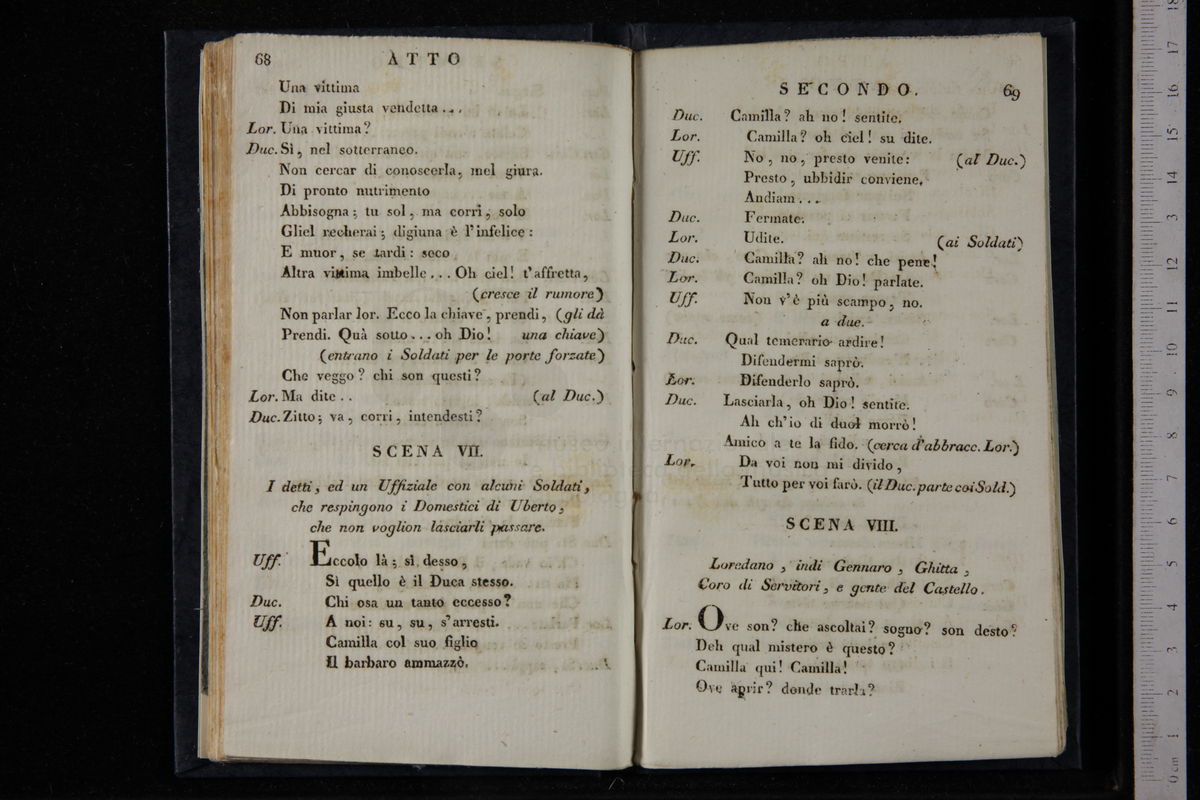 68 ATTO
Una vittima
Di mia giusta vendetta ...
Lor. Una vittima?
Duc. Sì, nel sotterraneo.
Non cercar di conoscerla, mel giura.
Di pronto nutrimento
Abbisogna; tu sol, ma corri, solo
Gliel recherai; digiuna è l'infelice:
E muor, se tardi: seco
Altra vittima imbelle ... Oh ciel! t'affretta,
(cresce il rumore)
Non parlar lor. Ecco la chiave, prendi, (gli dà
Prendi. Quà sotto ... oh Dio! una chiave)
(entrano i Soldati per le porte forzate)
Che veggo? chi son questi?
Lor. Ma dite .. (al Duc.)
Duc. Zitto; va, corri, intendesti?
SCENA VII.
I detti, ed un Uffiziale con alcuni Soldati,
che respingono i Domestici di Uberto,
che non voglion lasciarli passare.
Uff. Eccolo là; sì desso,
Sì quello è il Duca stesso.
Duc. Chi osa un tanto eccesso?
Uff. A noi: su, su, s'arresti.
Camilla col suo figlio
Il barbaro ammazzò.
SECONDO. 69
Duc. Camilla? ah no! sentite.
Lor. Camilla? oh ciel! su dite.
Uff. No, no, presto venite: (al Duc.)
Presto, ubbidir conviene.
Andiam ...
Duc. Fermate.
Lor. Udite. (ai Soldati)
Duc. Camilla? ah no! che pene!
Lor. Camilla? oh Dio! parlate.
Uff. Non v'è più scampo, no.
a due.
Duc. Qual temerario ardire!
Difendermi saprò.
Lor. Difenderlo saprò.
Duc. Lasciarla, oh Dio! sentite.
Ah ch'io di duol morrò!
Amico a te la fido. (cerca d'abbracc. Lor.)
Lor. Da voi non mi divido,
Tutto per voi farò. (il Duc. parte coi Sold.)
SCENA VIII.
Loredano, indi Gennaro, Ghitta,
Coro di Servitori, e gente del Castello.
Lor. Ove son? che ascoltai? sogno? son desto?
Deh qual mistero è questo?
Camilla qui! Camilla!
Ove aprir? donde trarla?